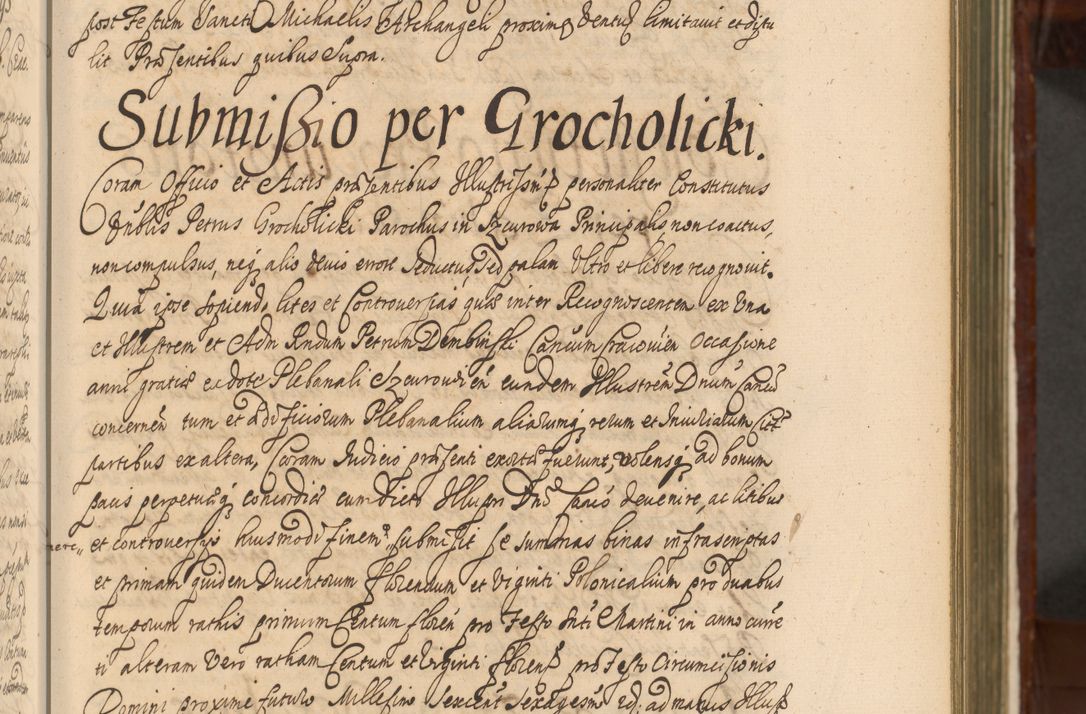 post Festum Sancti Michaelis Archangeli proxim venturum limitavit et distu
lit Præsentibus quibus Supra.
Submissio per Grocholicki.
Coram Officio et Actis præsentibus Illustrism personaliter Constitutus
Vnblis Petrus Grocholicki Parochus in Szcurowa Principalis non coactus,
non compulsus, neq alio devio errore Seductus, Sed palam Vltro et libere recognovit.
Quia ipse sopiendo lites et Controversias quæ inter Recognoscentem ex Vna
et Illustrem et Adm Rndum Petrum Dembinski Cancum Cracouien Occasione
anni gratiæ ex dote Plebanali Szcurouien eundem Illustren Dnum Cancū
concernen tum et ædificiorum Plebanalium aliarumq rerum et Iniuriarum
partibus ex altera, Coram Iudicio præsenti exortæ fuerunt, volensq ad bonum
pacis perpetuæq concordiæ cum dicto Illupri Dnō Cancō devenire, ac litibus
et controversijs huiusmodi finem submisit se summas binas infrascriptas
et primam quidem Ducentorum florenum et Viginti Polonicalium pro duabus
temporum rathis primum Centum floren pro Festo Sti Martini in anno curre
ti alteram Vero ratham Centum et Viginti floren pro Festo Circumcisionis
Domini proxime futuro Millesimo Sexcent Sexagesm ad manus Illust